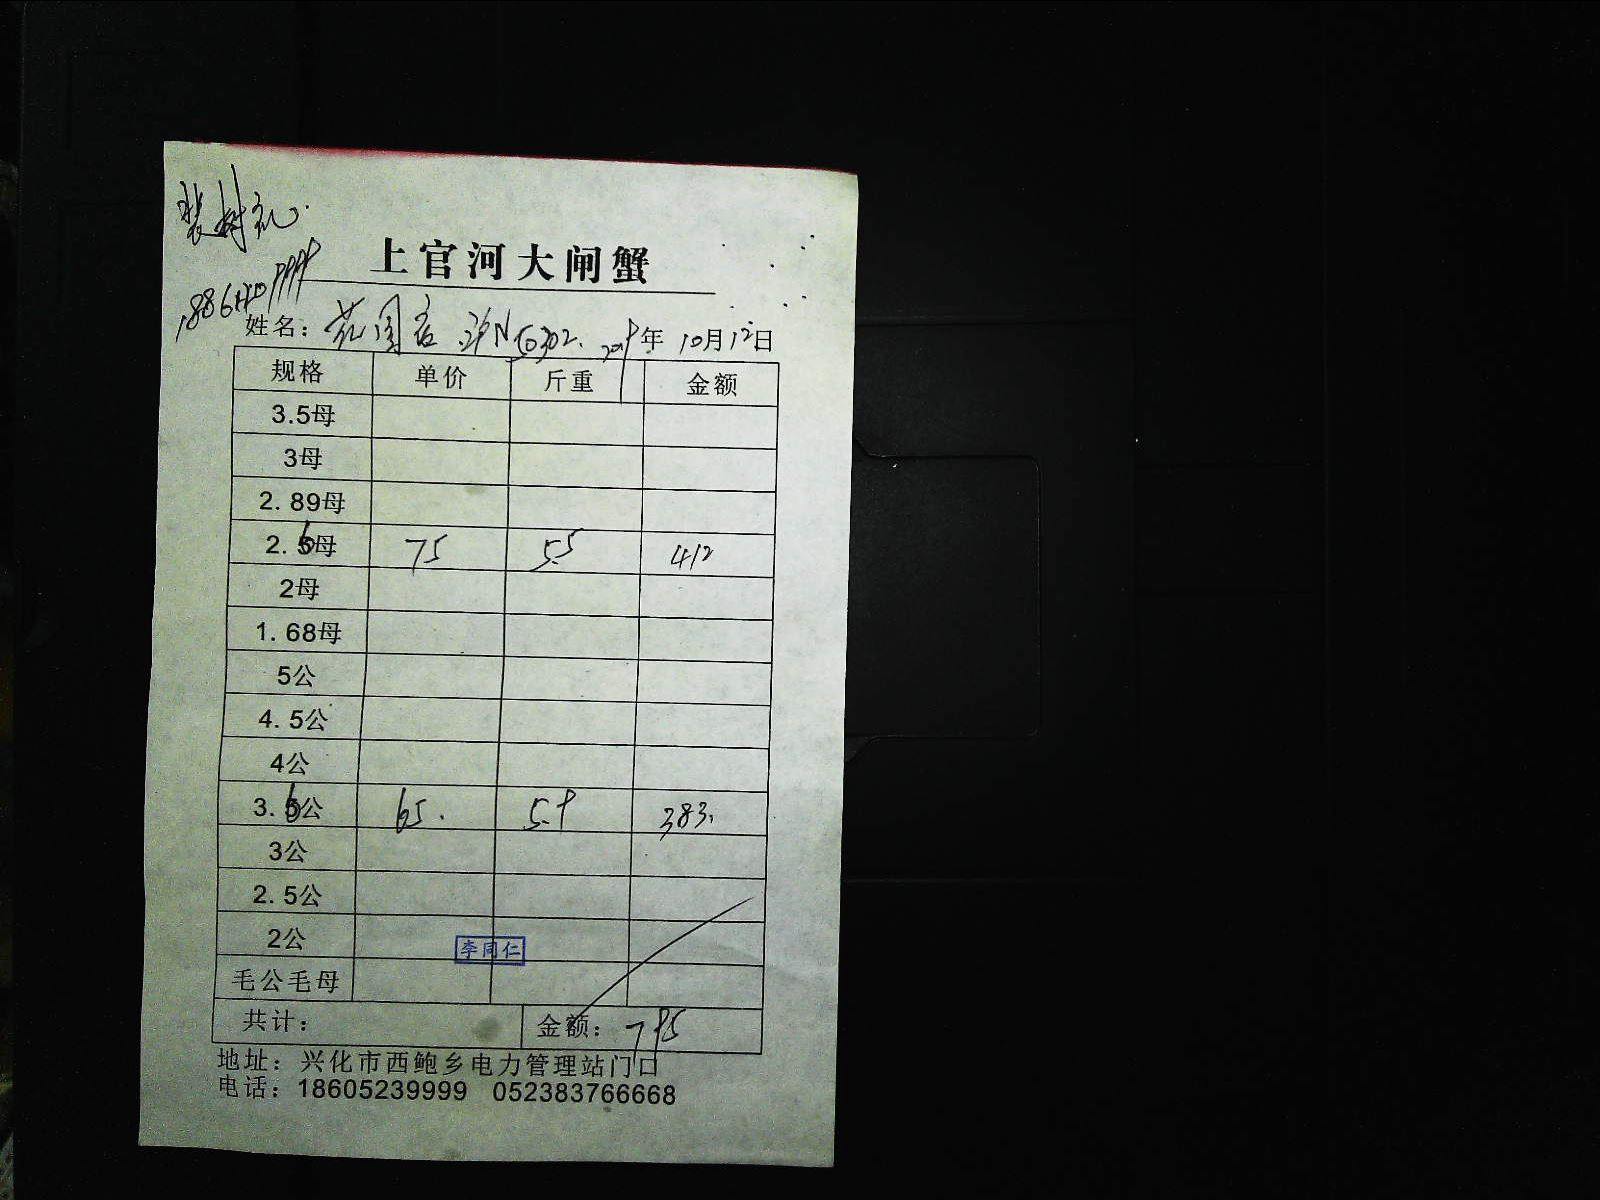 裴树礼
上官河大闸蟹
姓名: 范围启 沪N50302. 2019年10月12日
规格 单价 斤重 金额
3.5母
3母
2.89母
2.6母 75 5.5 412
2母
1.68母
5公
4.5公
4公
3.6公 65. 5.9 383.
3公
2.5公
2公
李同仁
毛公毛母
共计: 金额: 795
地址: 兴化市西鲍乡电力管理站门口
电话: 18605239999 052383766668